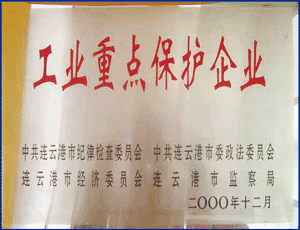 工业重点保护企业
中共连云港市纪律检查委员会 中共连云港市委政法委员会
连云港市经济委员会 连云港市监察局
二OOO年十二月